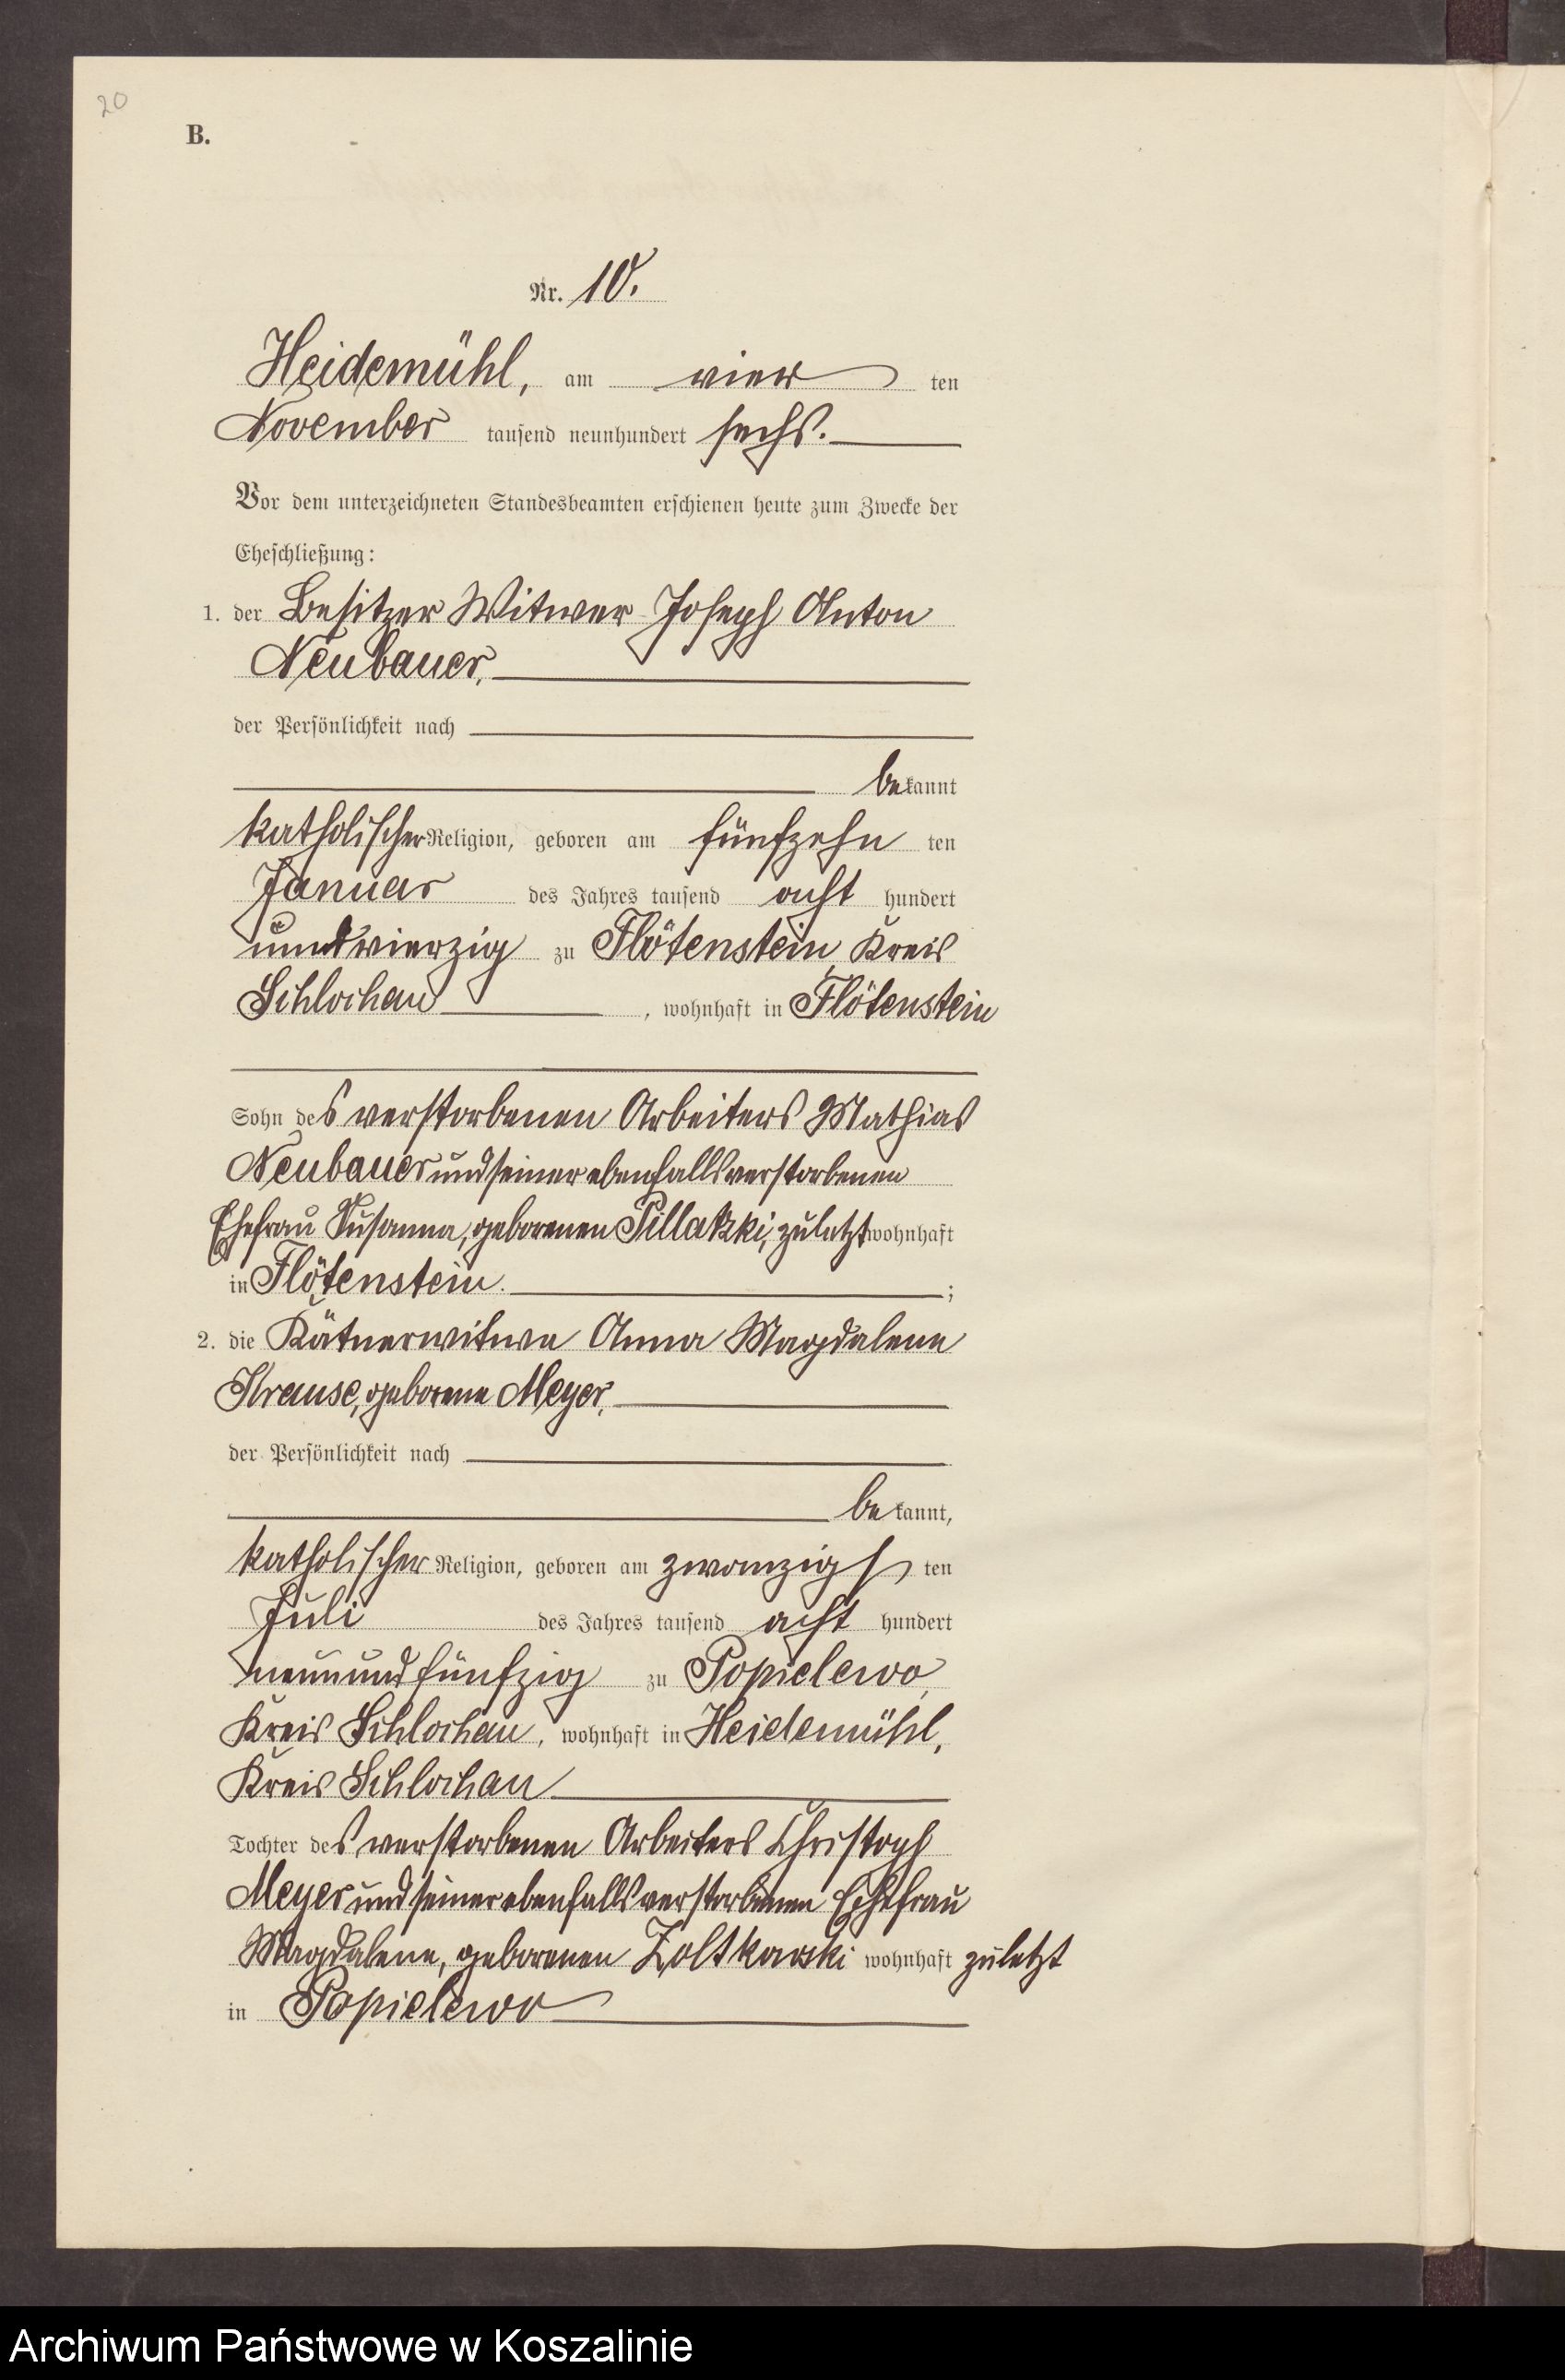 20
B.
Nr. 10.
Heidemühl, am vier ten
November tausend neunhundert sechs.
Vor dem unterzeichneten Standesbeamten erschienen heute zum Zwecke der
Eheschließung:
1. der Besitzer Witwer Joseph Anton
Neubauer,
der Persönlichkeit nach
bekannt
katholischer Religion, geboren am fünfzehn ten
Januar des Jahres tausend acht hundert
undvierzig zu Flötenstein, Kreis
Schlochau, wohnhaft in Flötenstein
Sohn des verstorbenen Arbeiters Mathias
Neubauer und seiner ebenfalls verstorbenen
Ehefrau Susanna, geborenen zuletzt wohnhaft
in Flötenstein. ;
2. die Kätnerwitwe Anna Magdalene
Krause, geborene Meyer,
der Persönlichkeit nach
bekannt,
katholischer Religion, geboren am zwanzigs ten
Juli des Jahres tausend acht hundert
neunundfünfzig zu Popielewo,
Kreis Schlochau, wohnhaft in Heidemühl,
Kreis Schlochau
Tochter des verstorbenen Arbeiters Christoph
Meyer und seiner ebenfalls verstorbenen Ehefrau
Magdalene, geborenen wohnhaft zuletzt
in Popielewo
Archiwum Państwowe w Koszalinie